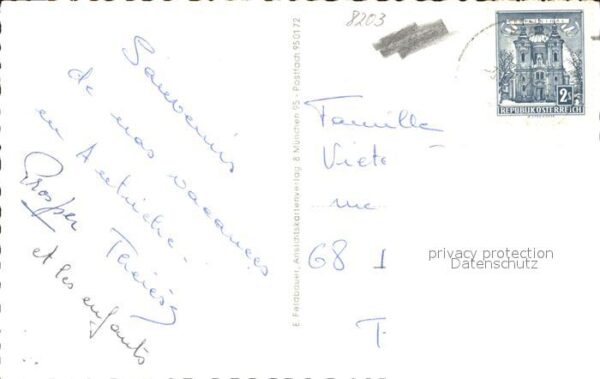 8203
Souvenirs
de nos vacances
en Autriche.
Thérèse
Prosper
et les enfants
E. Feldbauer, Ansichtskartenverlag 8 München 95 - Postfach 950172
REPUBLIK ÖSTERREICH
Famille
rue
68 1
F
privacy protection
Datenschutz